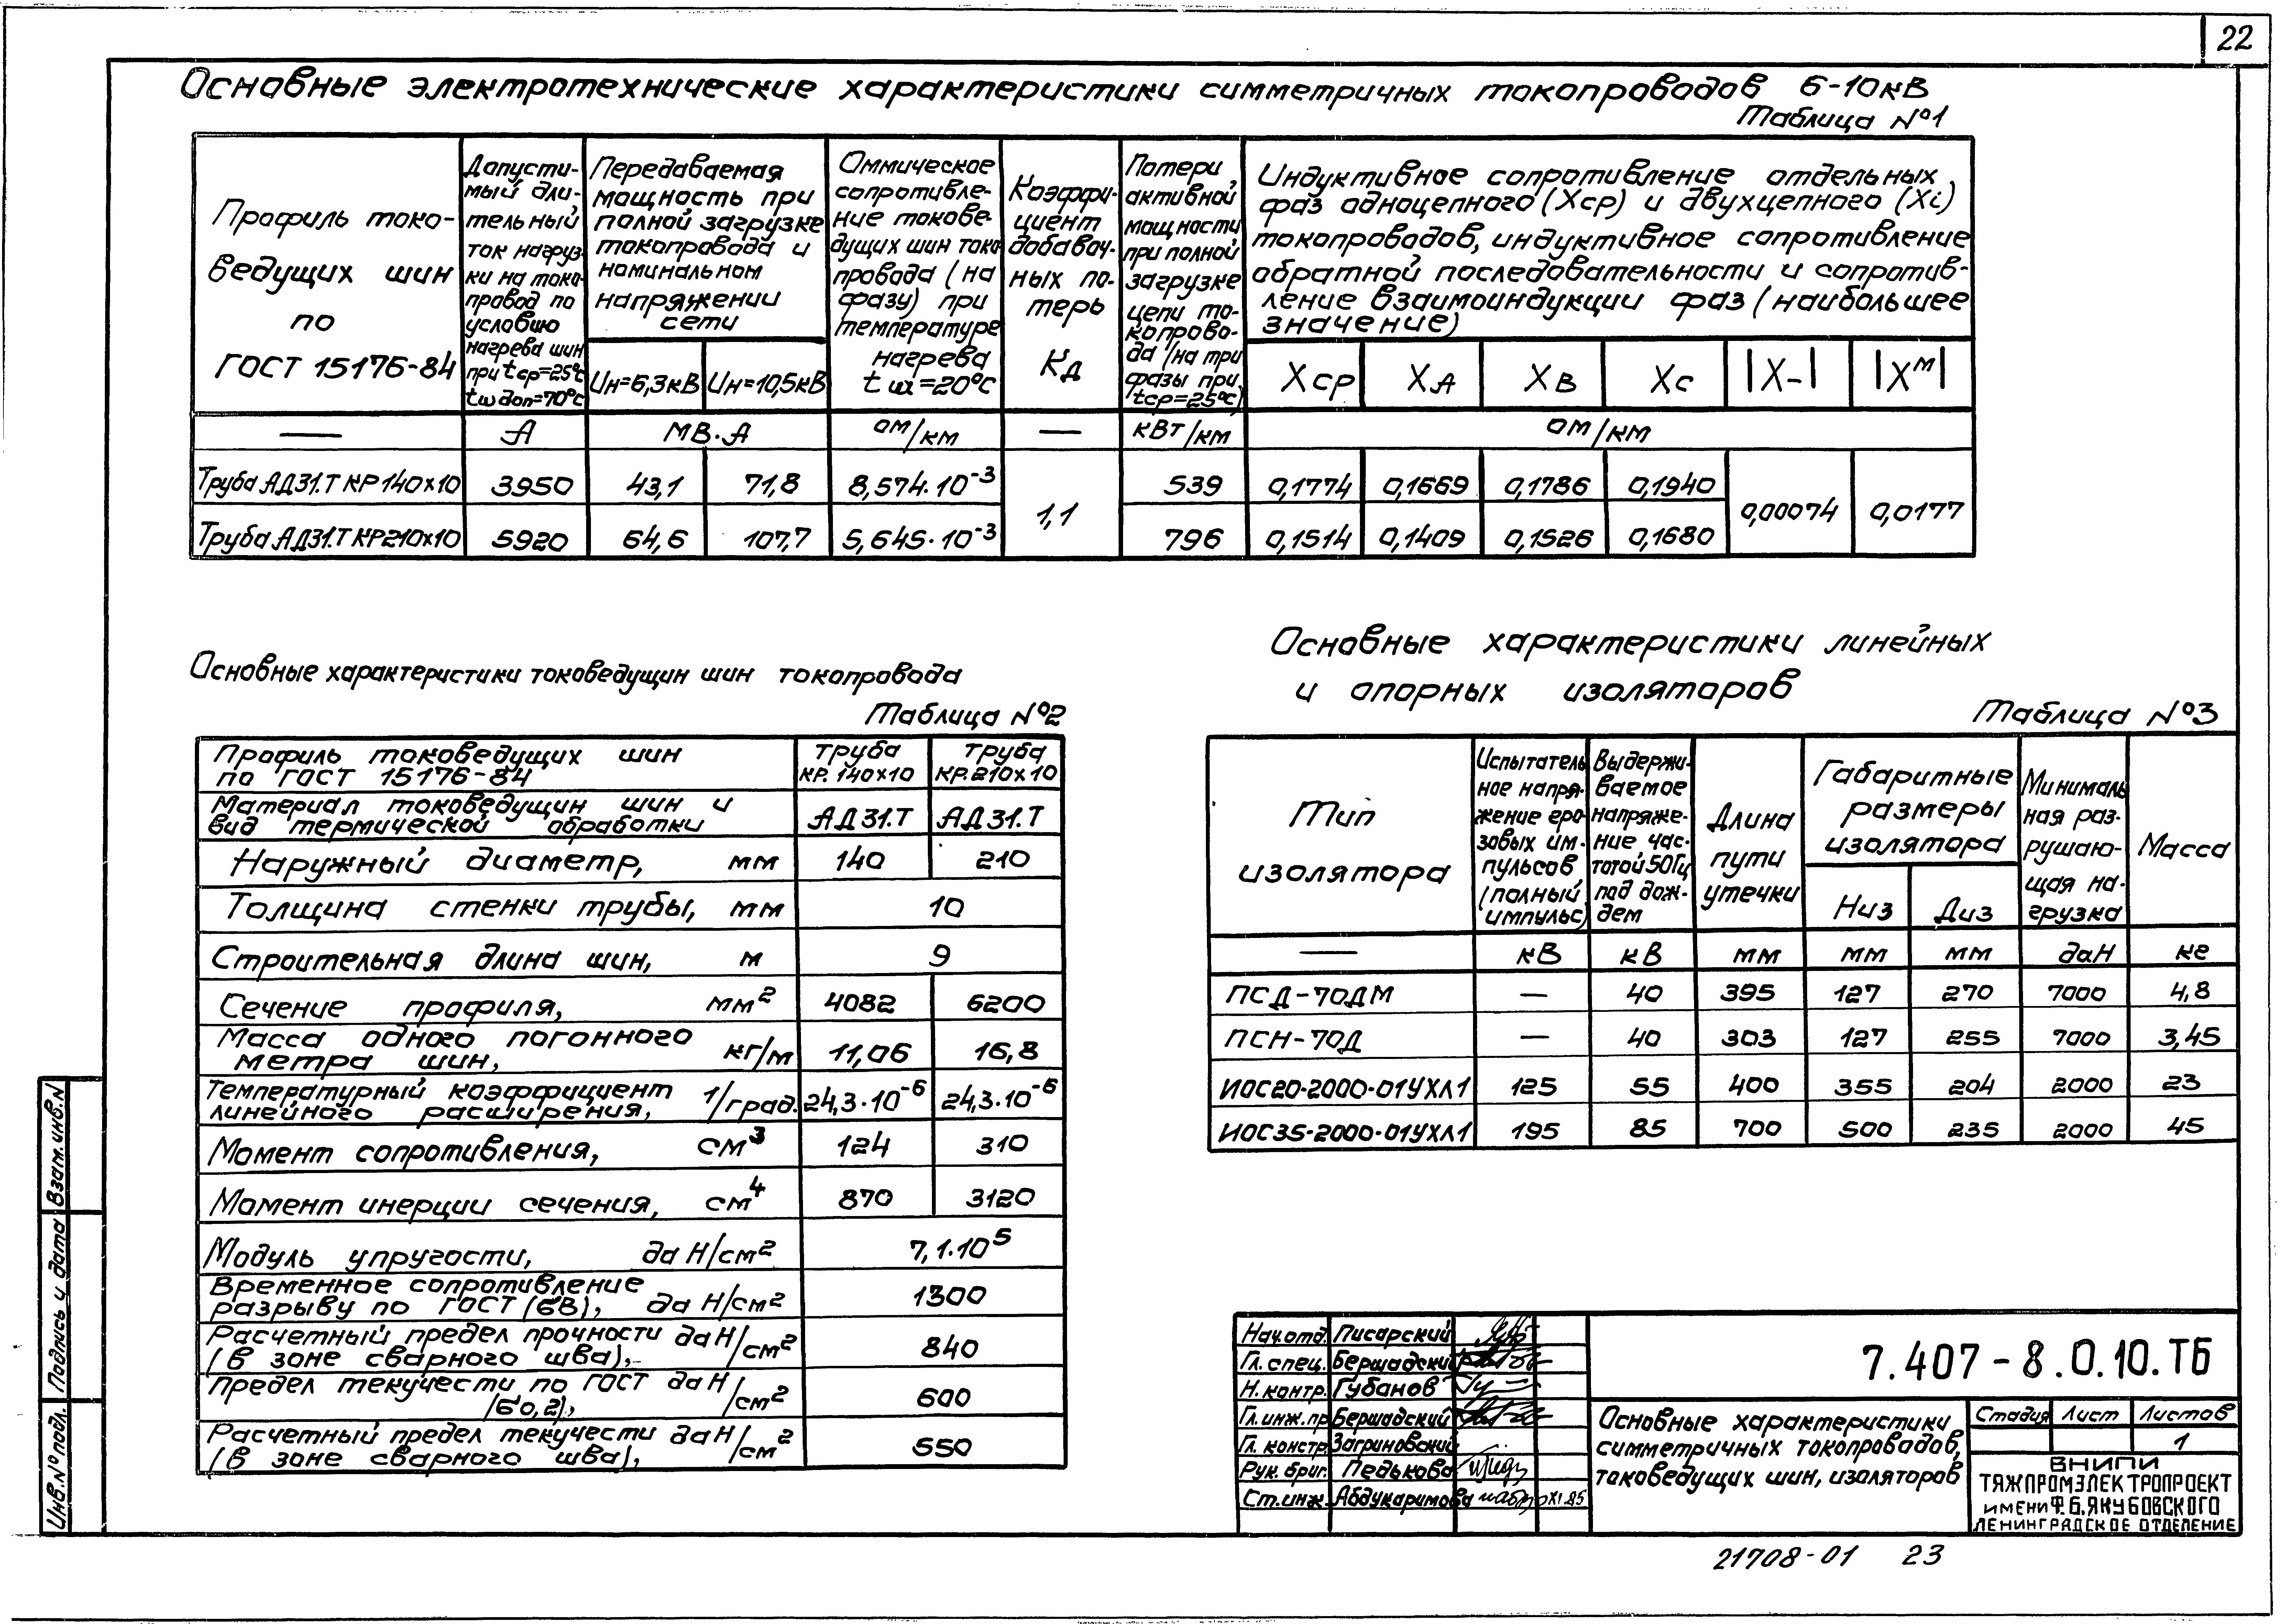 22
Основные электротехнические характеристики симметричных токопроводов 6-10кВ
Таблица №1
Профиль токо-
ведущих шин
по
ГОСТ 15176-84
Допусти-
мый дли-
тельный
ток нагруз-
ки на токо-
провод по
условию
нагрева шин
при tср=25°С
tш доп=70°С
Передаваемая
мощность при
полной загрузке
токопровода и
номинальном
напряжении
сети
Uн=6,3кВ
Uн=10,5кВ
Оммическое
сопротивле-
ние токове-
дущих шин токо
провода (на
фазу) при
температуре
нагрева
tш=20°С
Коэффи-
циент
добавоч-
ных по-
терь
Кд
Потери
активной
мощности
при полной
загрузке
цепи то-
копрово-
да (на три
фазы при
tср=25°С)
Индуктивное сопротивление отдельных
фаз одноцепного (Хср) и двухцепного (Xi)
токопроводов, индуктивное сопротивление
обратной последовательности и сопротив-
ление взаимоиндукции фаз (наибольшее
значение)
Хср ХА ХВ ХС |Х-| |Xᴹ|
— А МВ.А ом/км — кВт/км ом/км
Труба АД31.Т КР140х10 3950 43,1 71,8 8,574·10⁻³ 1,1 539 0,1774 0,1669 0,1786 0,1940 0,00074 0,0177
Труба АД31.Т КР210х10 5920 64,6 107,7 5,645·10⁻³ 796 0,1514 0,1409 0,1526 0,1680
Основные характеристики токоведущин шин токопровода
Таблица №2
Профиль токоведущих шин
по ГОСТ 15176-84
труба
КР. 140х10
труба
КР.210х10
Материал токоведущин шин и
вид термической обработки
АД31.Т АД31.Т
Наружный диаметр, мм 140 210
Толщина стенки трубы, мм 10
Строительная длина шин, м 9
Сечение профиля, мм² 4082 6200
Масса одного погонного
метра шин, кг/м 11,06 16,8
Температурный коэффициент
линейного расширения, 1/град. 24,3·10⁻⁶ 24,3·10⁻⁶
Момент сопротивления, см³ 124 310
Момент инерции сечения, см⁴ 870 3120
Модуль упругости, даН/см² 7,1·10⁵
Временное сопротивление
разрыву по ГОСТ (бВ), даН/см² 1300
Расчетный предел прочности даН/см²
(в зоне сварного шва), 840
Предел текучести по ГОСТ даН/см²
(б0,2), 600
Расчетный предел текучести даН/см²
(в зоне сварного шва), 550
Основные характеристики линейных
и опорных изоляторов
Таблица №3
Тип
изолятора
Испытатель
ное напря-
жение гро-
зовых им-
пульсов
(полный
импульс)
Выдержи-
ваемое
напряже-
ние час-
тотой 50Гц
под дож-
дем
Длина
пути
утечки
Габаритные
размеры
изолятора
Низ Диз
Минималь
ная раз-
рушаю-
щая на-
грузка
Масса
— кВ кВ мм мм мм даН кг
ПСД-70ДМ — 40 395 127 270 7000 4,8
ПСН-70Д — 40 303 127 255 7000 3,45
ИОС20-2000-01УХЛ1 125 55 400 355 204 2000 23
ИОС35-2000-01УХЛ1 195 85 700 500 235 2000 45
Нач.отд. Писарский
Гл. спец. Бершадский
Н. контр. Губанов
Гл.инж.пр Бершадский
Гл. констр. Загриновский
Рук. бриг. Педькова
Ст.инж. Абдукаримова XI.85
7.407-8.0.10.ТБ
Основные характеристики
симметричных токопроводов,
токоведущих шин, изоляторов
Стадия Лист Листов
1
ВНИПИ
ТЯЖПРОМЭЛЕКТРОПРОЕКТ
ИМЕНИ Ф.Б.ЯКУБОВСКОГО
ЛЕНИНГРАДСКОЕ ОТДЕЛЕНИЕ
Взам.инв.N
Подпись и дата
Инв.№ подл.
21708-01 23